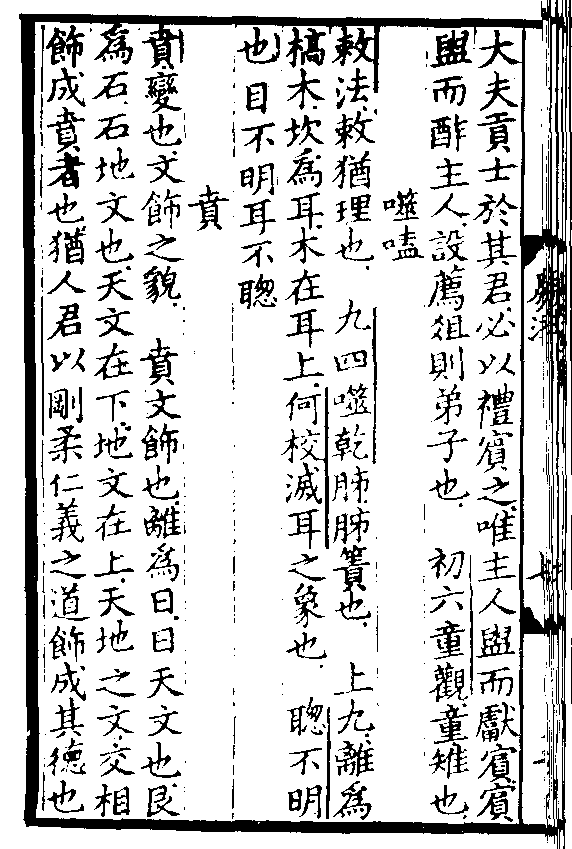 大夫貢士於其君必以禮賓之唯主人盥而獻賓賓
盥而酢主人設薦俎則弟子也　初六童觀童雉也
噬嗑
敕法敕猶理也　九四噬乾胏胏簀也　上九離為
槁木坎為耳木在耳上何校滅耳之象也　聰不明
也目不明耳不聰
賁
賁變也文飾之貌　賁文飾也離為日日天文也艮
為石石地文也天文在下地文在上天地之文交相
飾成賁者也猶人君以剛柔仁義之道飾成其德也